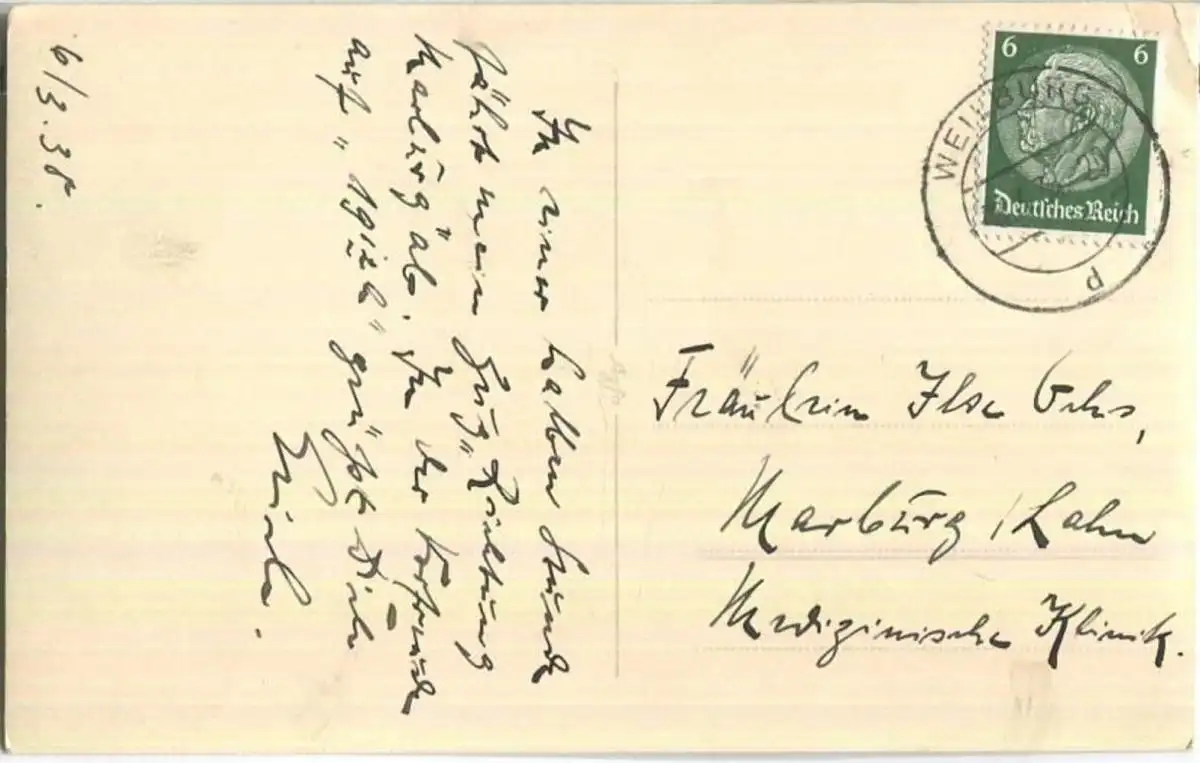 6/3.38.
In einer halben Stunde
fährt mein Zug "Richtung
Marburg" ab. In der Vorfreude
auf " " grüßt Dich
6 6
Deutsches Reich
WEILBURG
d
Fräulein Ilse
Marburg / Lahn
Medizinische Klinik.